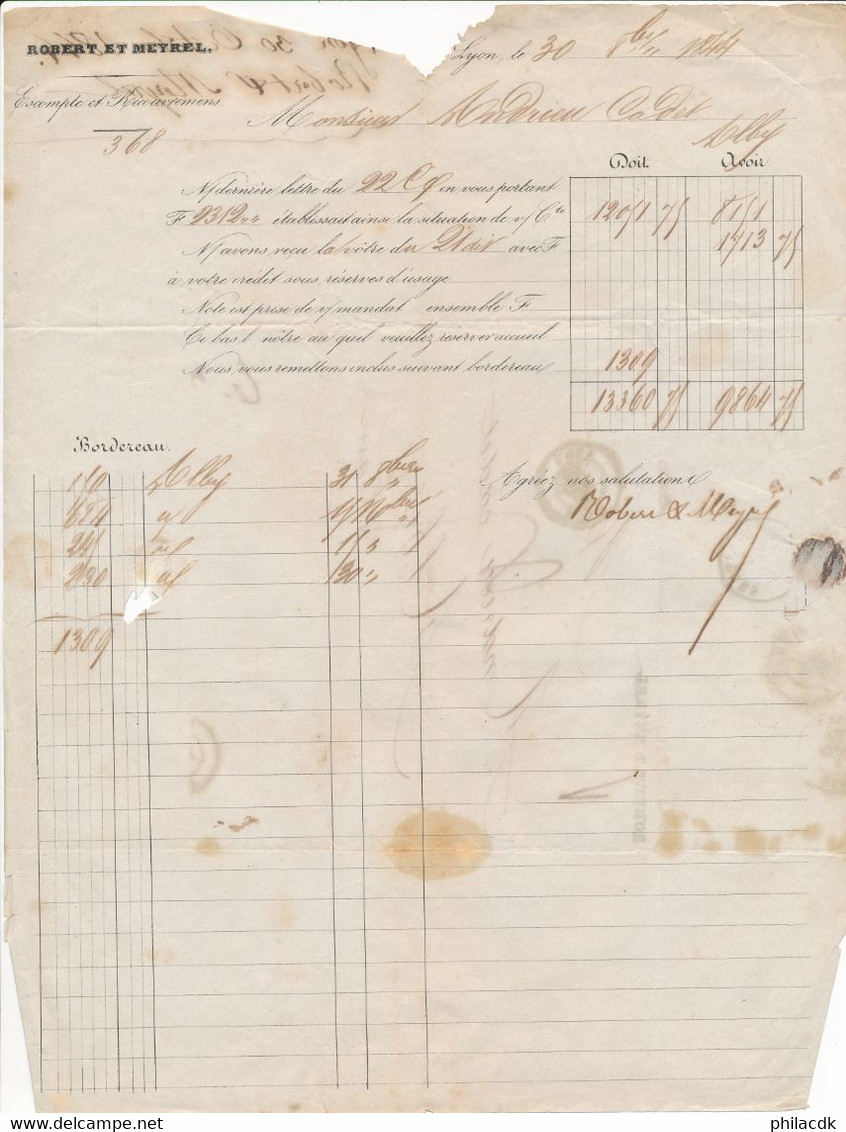 ROBERT ET MEYREL.
Lyon, le 30 8bre 1844
Escompte et Recouvremens.
Monsieur Andrieu Cadet
Alby
368
Doit. Avoir
N/ dernière lettre du 22 Ct en vous portant
F établissait ainsi la situation de v/ Cte 12051 75 8151
N/ avons reçu la vôtre du 27 dit avec F 1713 75
à votre crédit sous réserves d'usage.
Note est prise de v/ mandat ensemble F
Ci bas l nôtre au quel veuillez réserver accueil
Nous vous remettons inclus suivant bordereau 1309
13360 75 9864 75
Bordereau.
Alby 31 8bre
Agréez nos salutations
Robert & Meyrel
230 30
1309
Provenance : delcampe.net philacdk